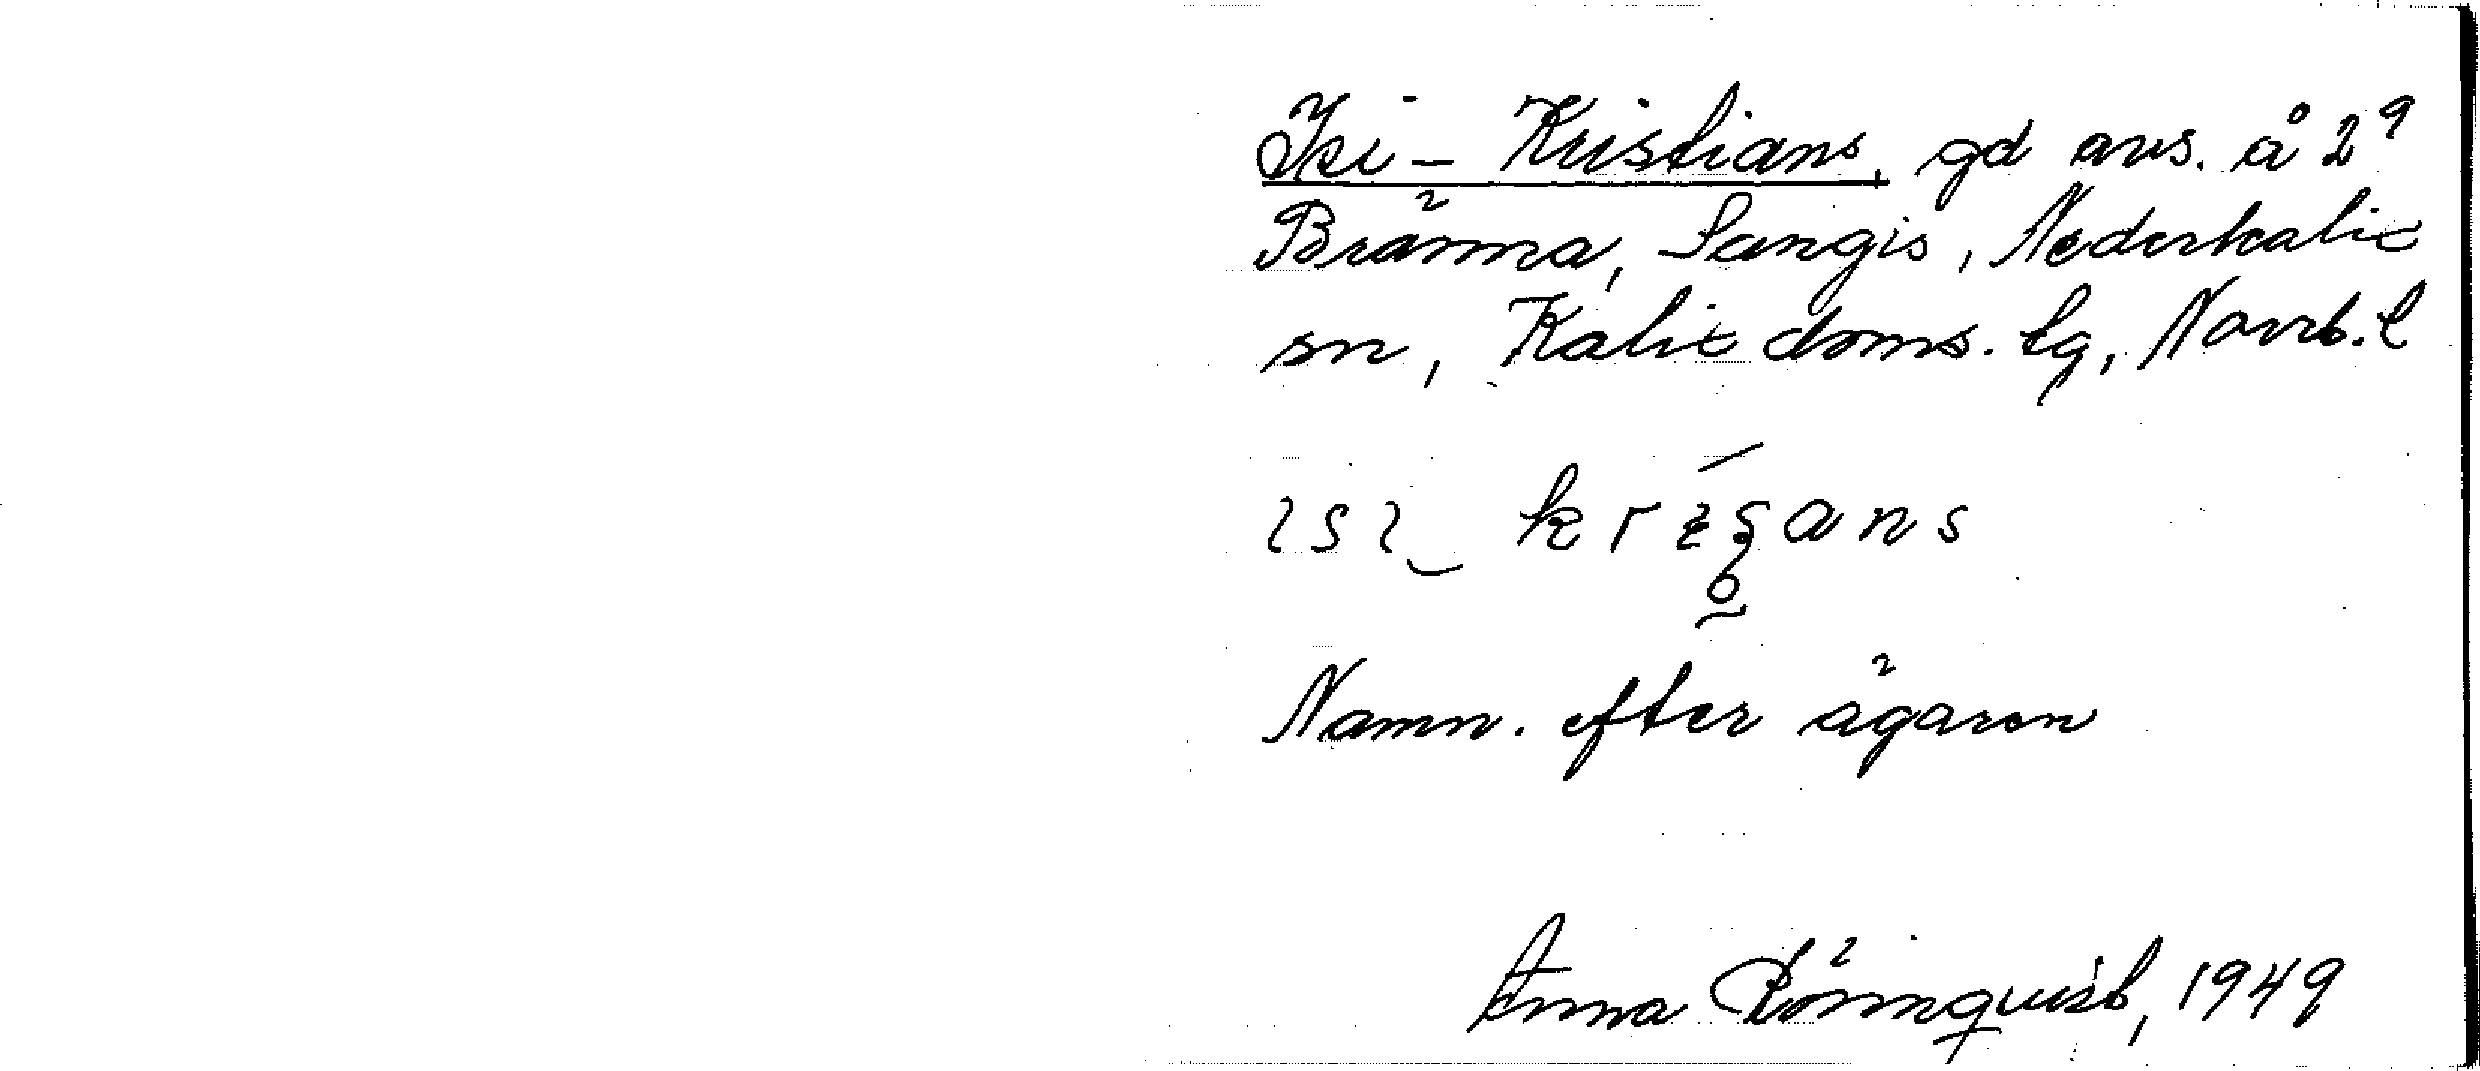 Isi-Kristians, gd avs. å 2⁹
Bränna, Sangis, Nederkalix
sn, Kalix doms. lg, Norrb. l
ɩsɩ
Namn. efter ägaren
Anna Lönnquist, 1949